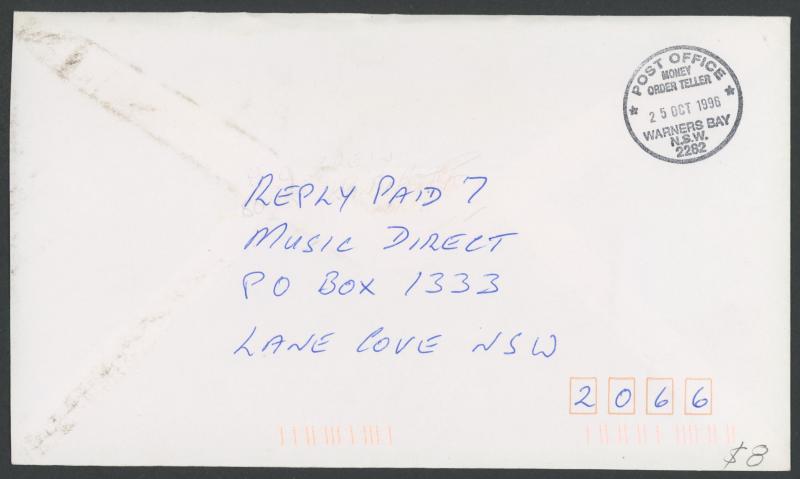 POST OFFICE
MONEY
ORDER TELLER
25 OCT 1996
WARNERS BAY
N.S.W.
2282
REPLY PAID 7
MUSIC DIRECT
PO BOX 1333
LANE COVE NSW
2066
$8